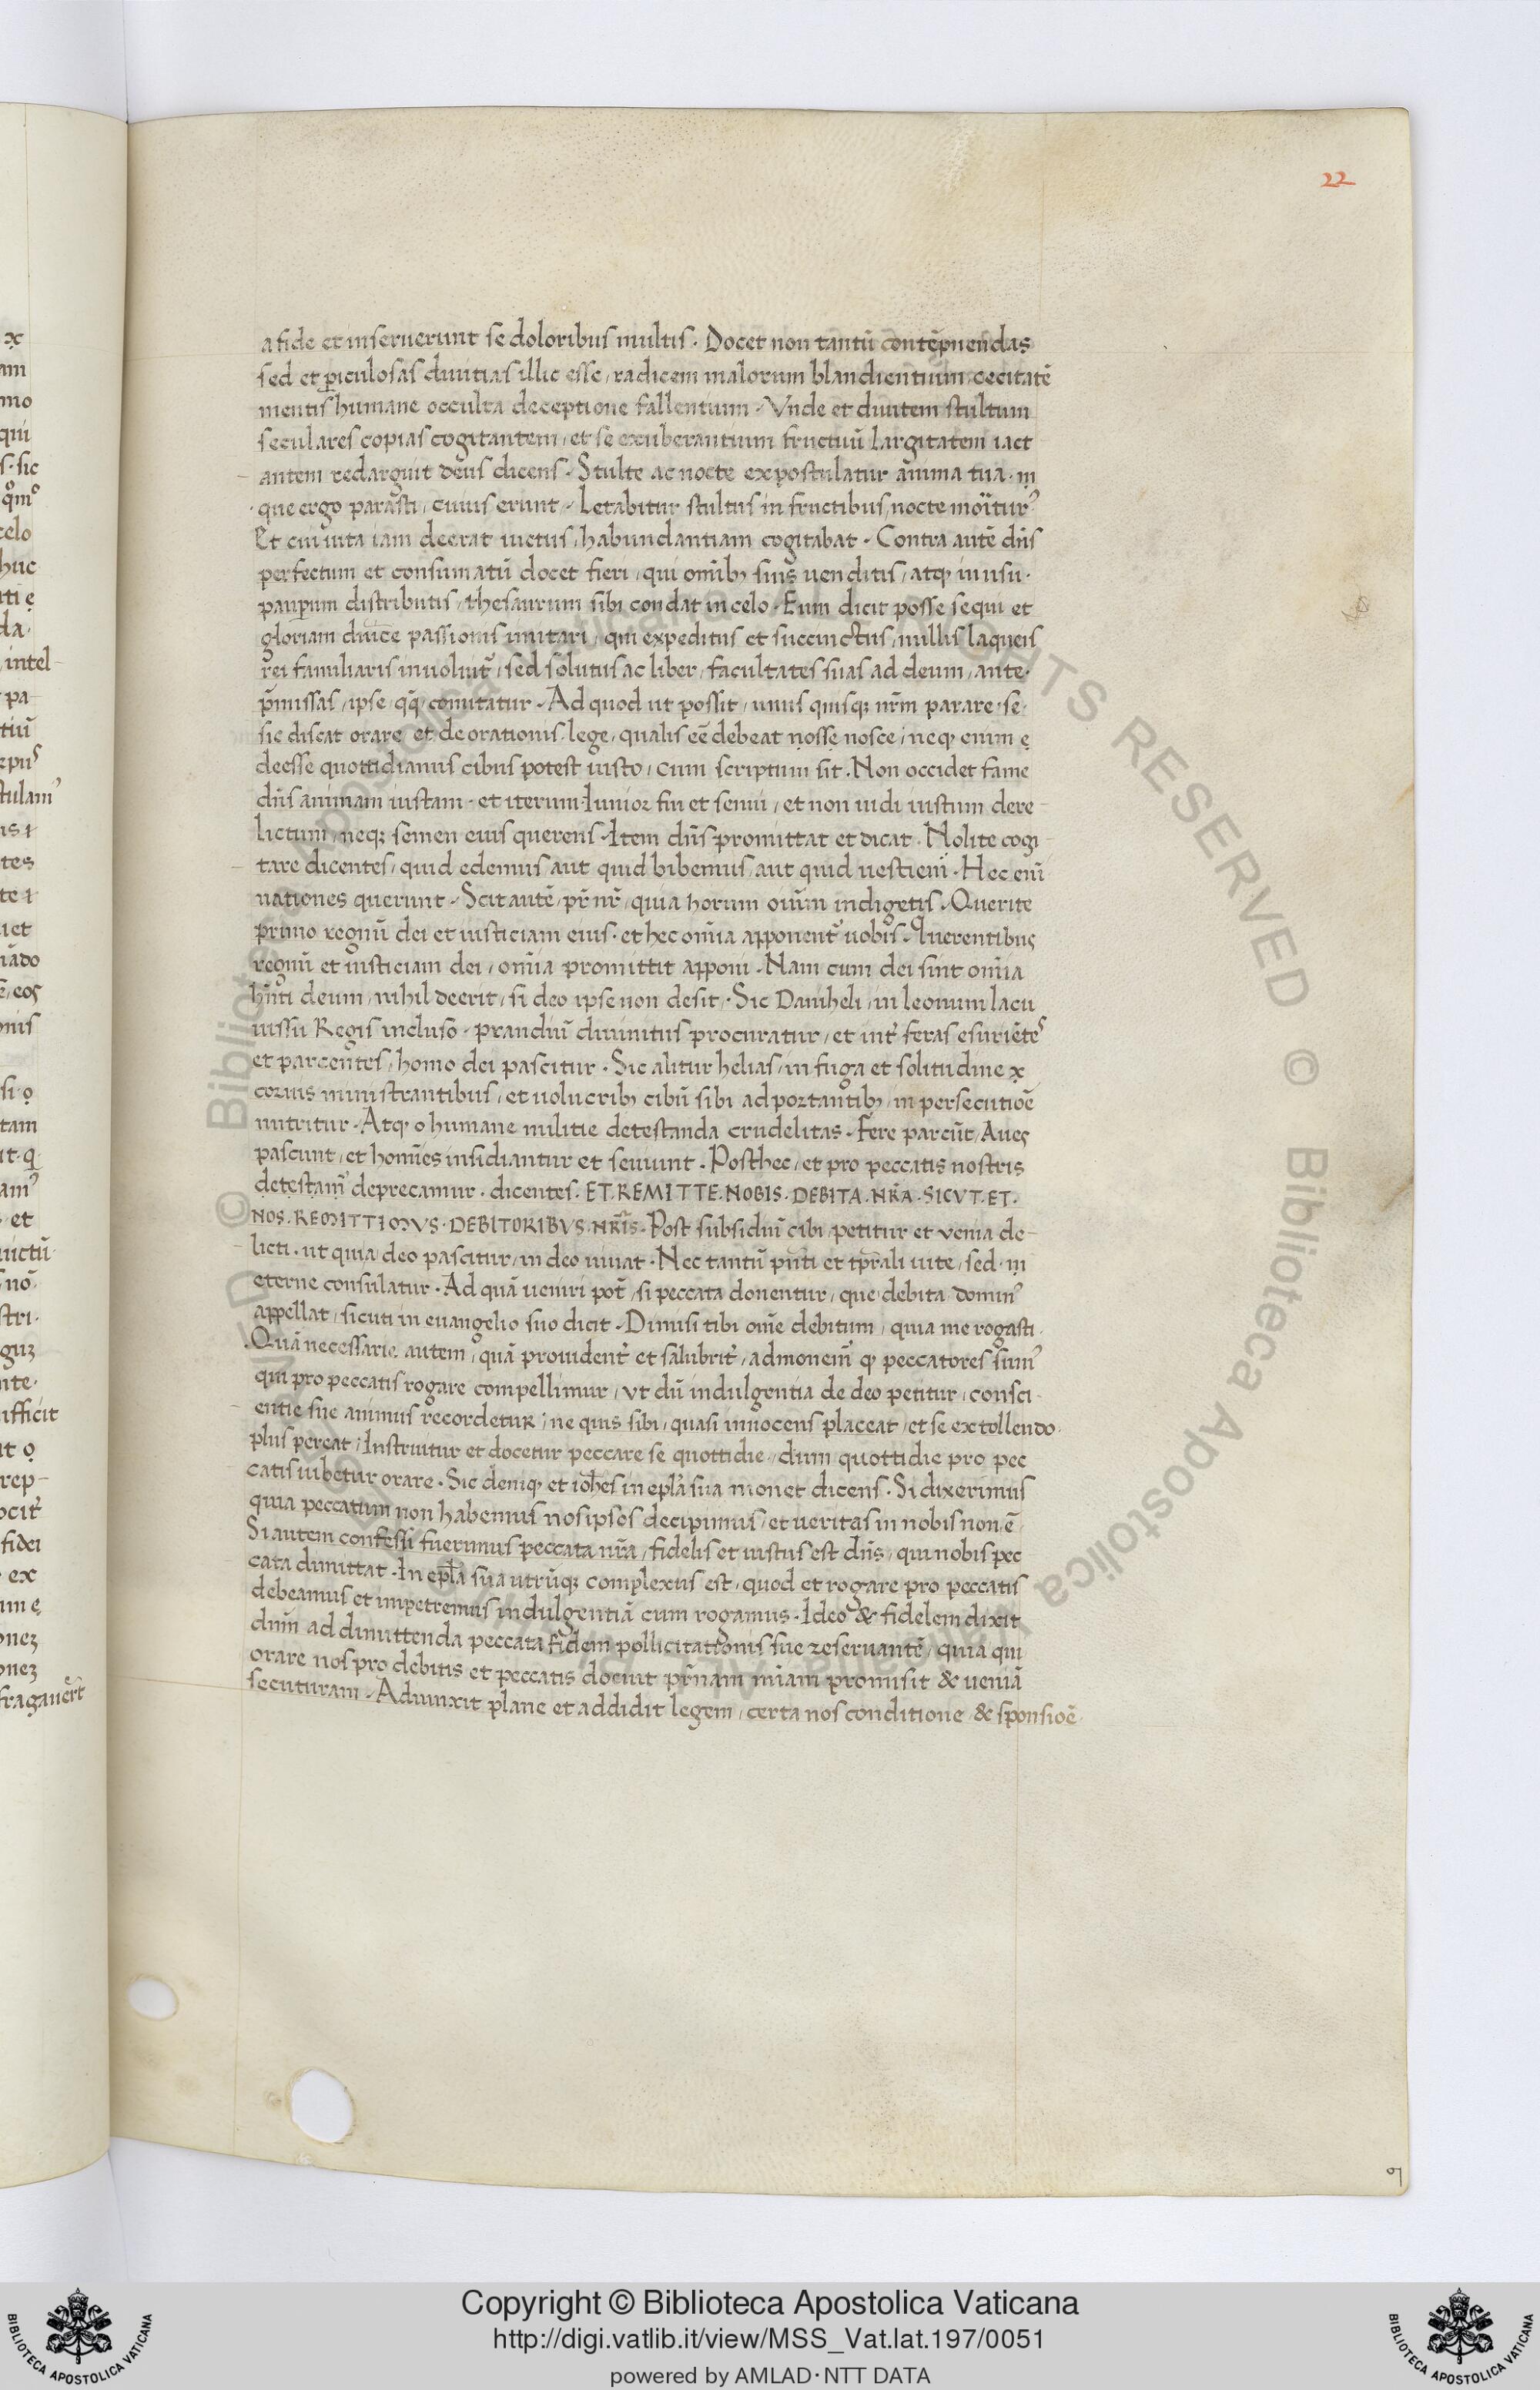 22
a fide et inseruerunt se doloribus multis. Docet non tantū contēpnendas
sed et ꝑiculosas diuitias illic esse, radicem malorum blandientium, cecitatē
mentis humane occulta deceptione fallentium. Vnde et diuitem stultum
seculares copias cogitantem, et se exuberantium fructuū largitatem iact
antem redarguit deus dicens. Stulte ac nocte expostulatur anima tua.
que ergo parasti, cuius erunt. Letabitur stultus in fructibus, nocte moriturꝰ
Et cui uita iam deerat uictus, habundantiam cogitabat. Contra autē dn̄s
perfectum et consumatū docet fieri, qui omīb; suis uenditis, atq; in usu.
pauꝑum distributis, thesaurum sibi condat in celo. Eum dicit posse sequi et
gloriam passionis imitari, qui expeditus et succinctus, nullis laqueis
rei familiaris inuoluit᷑, sed solutus ac liber, facultates suas ad deum, ante.
p̄missas, ipse qq; comitatur. Ad quod ut possit, unus quisq; nr̄m parare. se.
sic discat orare et de orationis lege, qualis eē debeat nosse nosce, neq; enim
deesse quottidianus cibus potest iusto, cum scriptum sit. Non occidet fame
dn̄s animam iustam. et iterum. Iunior fui et senui, et non uidi iustum dere
lictum, neq; semen eius querens. Item dn̄s promittat et dicat. Nolite cogi
tare dicentes, quid edemus aut quid bibemus, aut quid uestiem̄. Hec eni̅
nationes querunt. Scit autē, pr̄ nr̄, quia horum oium indigetis. Querite
primo regnū dei et iusticiam eius. et hec omīa apponent᷑ uobis. Querentibus
regnū et iusticiam dei, omīa promittit apponi. Nam cum dei sint omīa
hn̄ti deum, nihil deerit, si deo ipse non desit. Sic Daniheli, in leonum lacu
iussu Regis incluso. prandiū diuinitus procuratur, et int᷑ feras esuriētes
et parcentes, homo dei pascitur. Sic alitur helias, in fuga et solitudine
coruis ministrantibus, et uolucrib; cibū sibi ad portantib; in persecutioē
nutritur. Atq; o humane militie detestanda crudelitas. Fere parcūt, Aues
pascunt, et homīes insidiantur et seuiunt. Post hec, et pro peccatis nostris
detestam᷑ deprecamur. dicentes. ET. REMITTE. NOBIS. DEBITA. NR̄A. SICVT. ET.
NOS. REMITTIMVS. DEBITORIBVS. NR̄IS. Post subsidiū cibi, petitur et venia de-
licti. ut quia deo pascitur, in deo uiuat. Nec tantū pn̄ti et tp̄rali uite, sed.
eterne consulatur. Ad quā ueniri pot᷑, si peccata donentur, que debita dominꝰ
appellat, sicuti in euangelio suo dicit. Dimisi tibi omē debitum, quia me rogasti.
Quā necessarie autem, quā prouident᷑ et salubrit᷑, admonem᷑ q peccatores sumꝰ
qui pro peccatis rogare compellimur, vt dū indulgentia de deo petitur, consci-
entie sue animus recordetur; ne quis sibi, quasi innocens placeat, et se extollendo
plus pereat, Instruitur et docetur peccare se quottidie, dum quottidie pro pec
catis iubetur orare. Sic deniq; et ioh̄es in epl̄a sua monet dicens. Si dixerimus
quia peccatum non habemus nos ipsos decipimus, et ueritas in nobis non ē
Si autem confessi fuerimus peccata nr̄a, fidelis et iustus est dn̄s, qui nobis pec
cata dimittat. In epl̄a sua utrūq; complexus est, quod et rogare pro peccatis
debeamus et impetremus indulgentiā cum rogamus. Ideo & fidelem dixit
dnm̄ ad dimittenda peccata fidem pollicitationis sue reseruantē, quia qui
orare nos pro debitis et peccatis docuit pr̄nam mi̅am promisit & ueniā
secuturam. Adiunxit plane et addidit legem, certa nos conditione & sponsioē
© Biblioteca Apostolica Vaticana ALL RIGHTS RESERVED
Copyright © Biblioteca Apostolica Vaticana
http://digi.vatlib.it/view/MSS_Vat.lat.197/0051
powered by AMLAD·NTT DATA
BIBLIOTECA APOSTOLICA VATICANA
BIBLIOTECA APOSTOLICA VATICANA